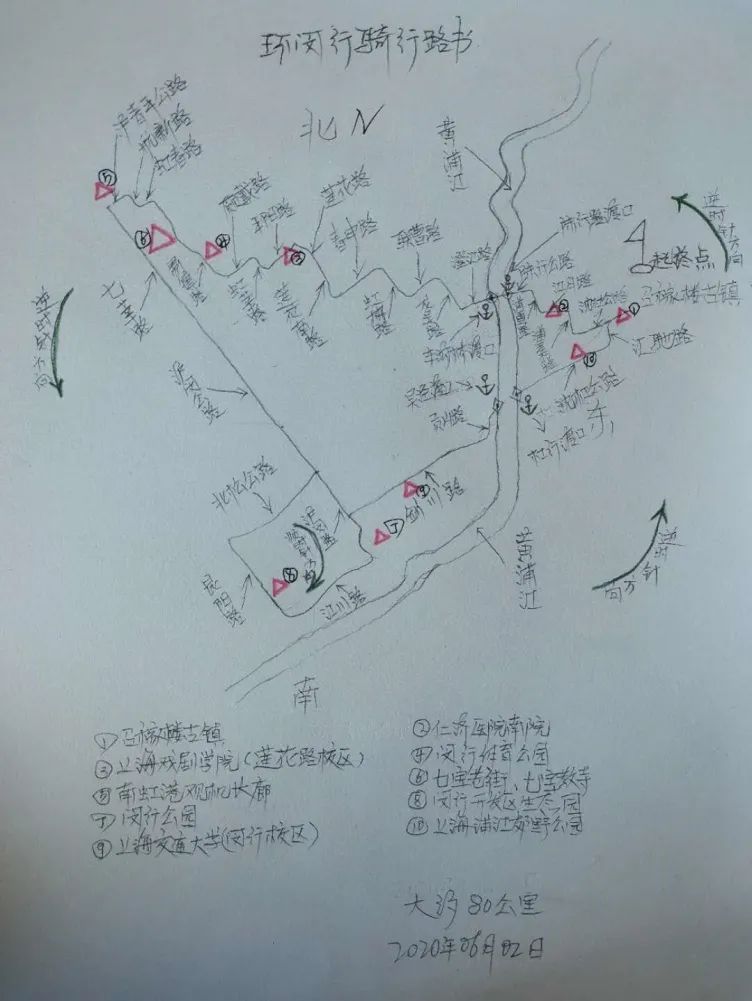 环闵行骑行路书
北N
黄浦江
沪青平公路
航新路
虹春路
⑤
⑥
④
平阳路
③
莲花路
春申路
虹梅路
澄江路
陈行路渡口
陈行公路
江月路
②
①
召稼楼古镇
起终点
逆时针方向
车沟桥渡口
吴泾渡口
剑川路
⑩
江驰路
沈杜公路
杜行渡口
东
七莘路
沪闵公路
逆时针方向
北松公路
沪闵路
顺时针方向
⑨
⑦
剑川路
⑧
江川路
黄浦江
逆时针方向
南
①召稼楼古镇
②仁济医院南院
③上海戏剧学院(莲花路校区)
④闵行体育公园
⑤南虹港观机长廊
⑥七宝老街、七宝教寺
⑦闵行公园
⑧闵行开发区生态园
⑨上海交通大学(闵行校区)
⑩上海浦江郊野公园
大约80公里
2020年06月02日